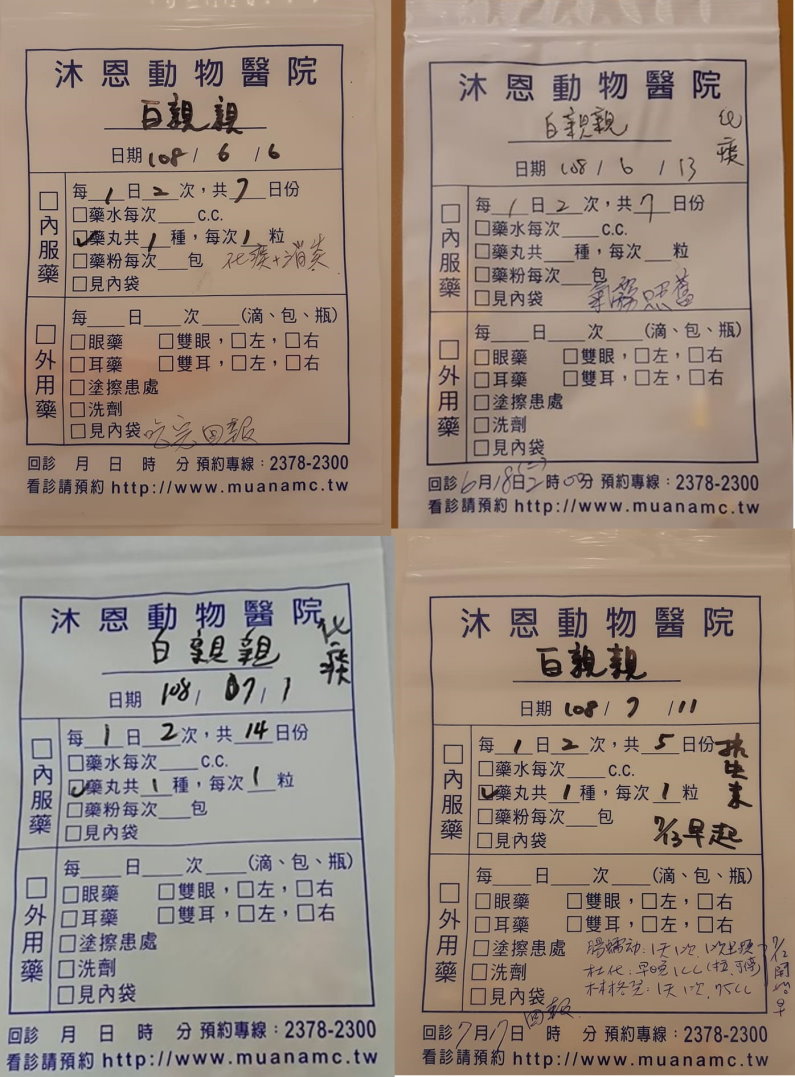 沐恩動物醫院
白親親
日期 108 / 6 / 6
內服藥
每 1 日 2 次，共 7 日份
藥水每次 c.c.
藥丸共 1 種，每次 1 粒
藥粉每次 包 化痰+消炎
見內袋
外用藥
每 日 次 (滴、包、瓶)
眼藥 雙眼，左，右
耳藥 雙耳，左，右
塗擦患處
洗劑
見內袋 吃完回報
回診 月 日 時 分 預約專線：2378-2300
看診請預約 http://www.muanamc.tw
沐恩動物醫院
白親親 化痰
日期 108 / 6 / 13
內服藥
每 1 日 2 次，共 7 日份
藥水每次 c.c.
藥丸共 種，每次 粒
藥粉每次 包
見內袋 氣霧照舊
外用藥
每 日 次 (滴、包、瓶)
眼藥 雙眼，左，右
耳藥 雙耳，左，右
塗擦患處
洗劑
見內袋
回診 6 月 18 日(二) 2 時 00 分 預約專線：2378-2300
看診請預約 http://www.muanamc.tw
沐恩動物醫院
白親親 化痰
日期 108 / 07 / 1
內服藥
每 1 日 2 次，共 14 日份
藥水每次 c.c.
藥丸共 1 種，每次 1 粒
藥粉每次 包
見內袋
外用藥
每 日 次 (滴、包、瓶)
眼藥 雙眼，左，右
耳藥 雙耳，左，右
塗擦患處
洗劑
見內袋
回診 月 日 時 分 預約專線：2378-2300
看診請預約 http://www.muanamc.tw
沐恩動物醫院
白親親
日期 108 / 7 / 11
內服藥
每 1 日 2 次，共 5 日份 抗生素
藥水每次 c.c.
藥丸共 1 種，每次 1 粒
藥粉每次 包
見內袋 7/13早起
外用藥
每 日 次 (滴、包、瓶)
眼藥 雙眼，左，右
耳藥 雙耳，左，右
塗擦患處 腸蠕动：1天1次，1次
洗劑 早晚1cc
見內袋 1天1次，.75cc
7/12開始早
回報
回診 7 月 17 日 時 分 預約專線：2378-2300
看診請預約 http://www.muanamc.tw